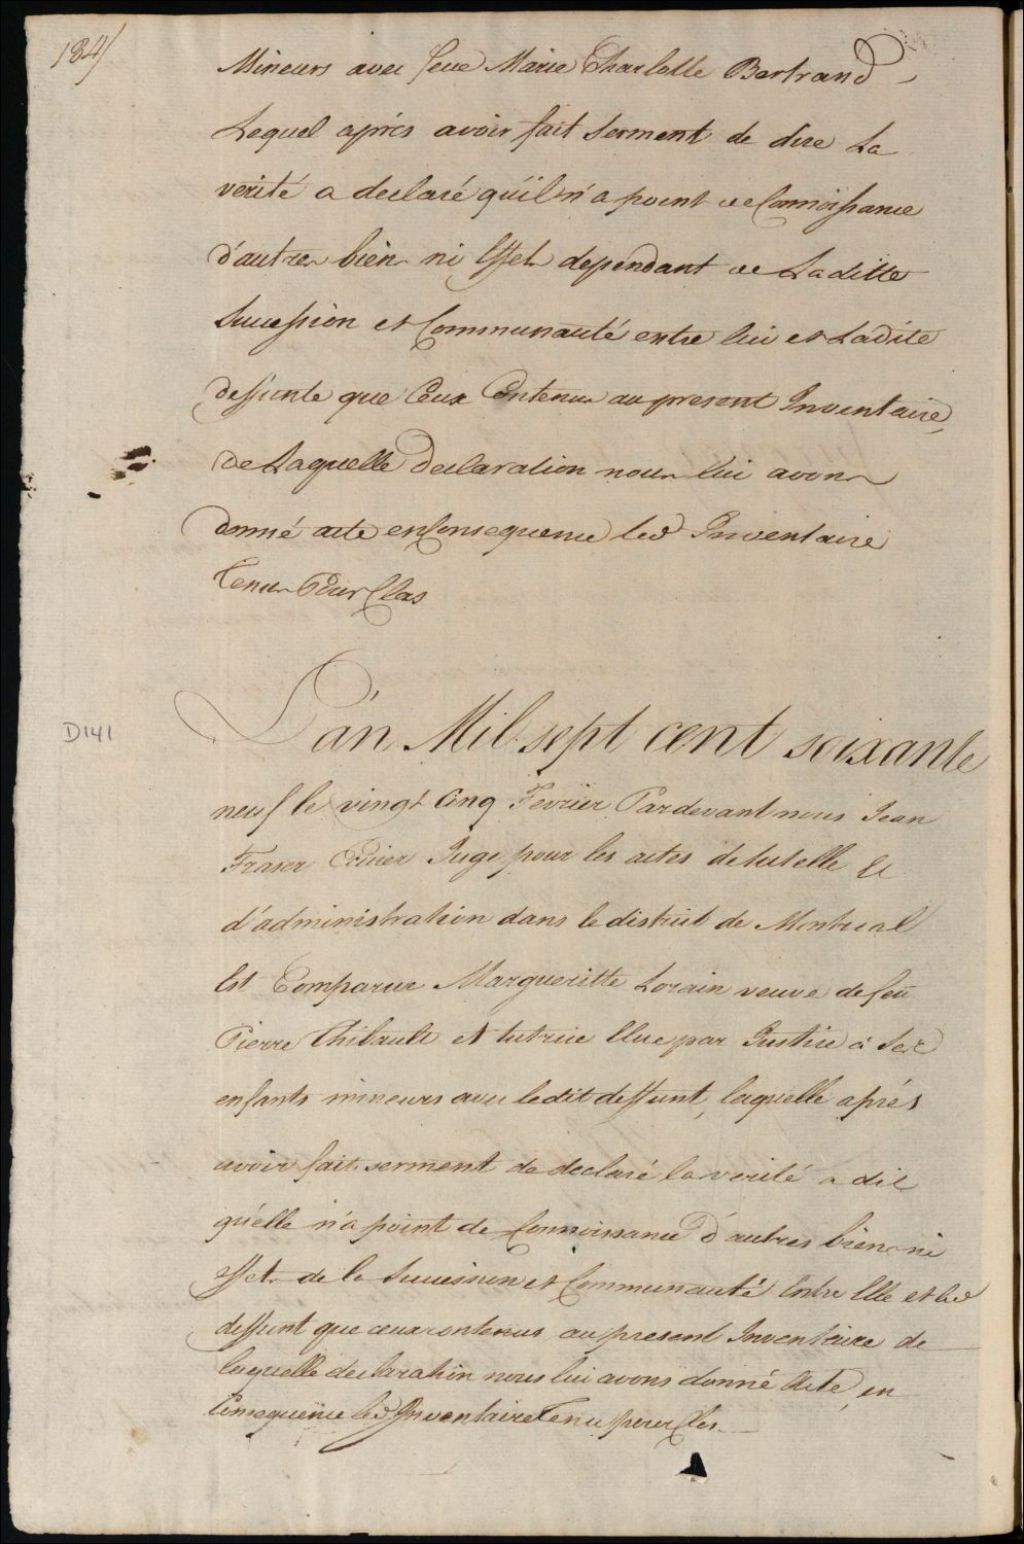 184/
Mineurs avec feue Marie Charlotte Bertrand
Lequel aprés avoir fait serment de dire La
verité a declaré qu'il n'a point de Connoissance
d'autres biens ni Effets dependant de Laditte
Succession et Communauté entre lui et Ladite
deffunte que Ceux Contenus au present Inventaire,
de Laquelle declaration nous lui avons
donné acte en Consequence led Inventaire
Tenu Pour Clos
D141
L'an Mil sept cent soixante
neuf le vingt Cinq Fevrier Pardevant nous Jean
Fraser Ecuier Juge pour les actes de tutelle et
d'administration dans le district de Montreal
Est Comparue Margueritte Lorain veuve de feu
Pierre Thibault et tutrice Elue par Justice à Ses
enfants mineurs avec ledit deffunt, laquelle aprés
avoir fait serment de declaré la verité a dit
qu'elle n'a point de Connoissance d'autres biens ni
effets de la Succession et Communauté Entre Elle et led
deffunt que ceux contenus au present Inventaire de
laquelle declaration nous lui avons donné Acte, en
Consequence led Inventaire Tenu pour Clos